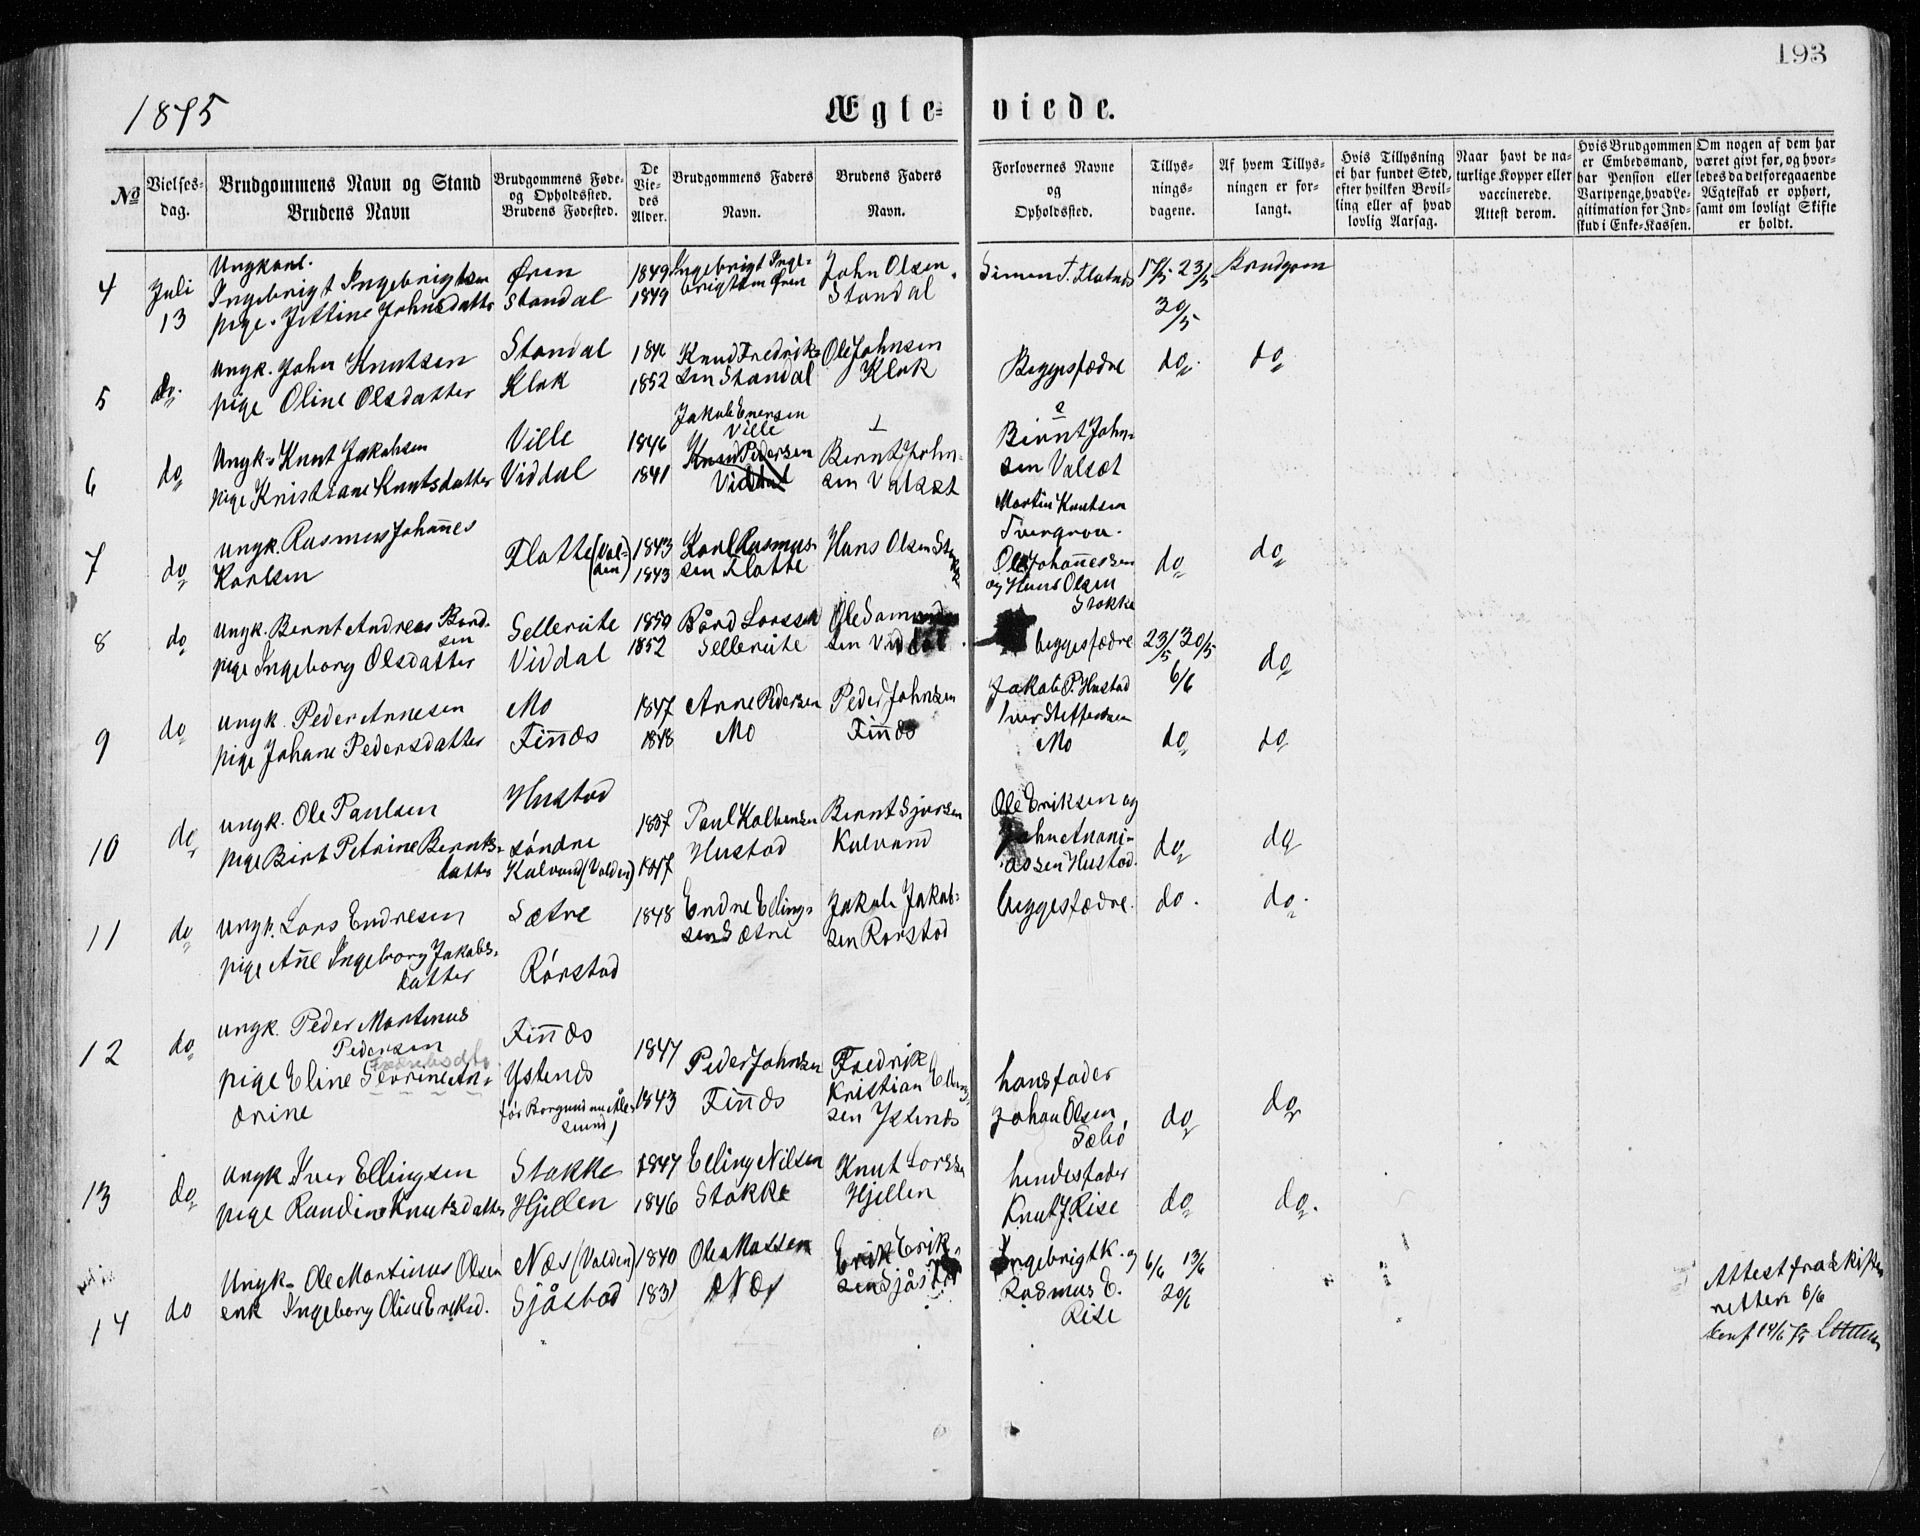 193
1875
Ægte-viede.
No
Vielses-dag.
Brudgommens Navn og Stand
Brudens Navn
Brudgommens Føde- og Opholdssted.
Brudens Fødested.
De Viedes Alder.
Brudgommens Faders Navn.
Brudens Faders Navn.
Forlovernes Navne og Opholdssted.
Tillysningsdagene.
Af hvem Tillysningen er forlangt.
Hvis Tillysning ei har fundet Sted, efter hvilken Bevilling eller af hvad lovlig Aarsag.
Naar havt de naturlige Kopper eller vaccinerede. Attest derom.
Hvis Brudgommen er Embedsmand, har Pension eller Vartpenge, hvad Legitimation for Indskud i Enke-Kassen.
Om nogen af dem har været givt før, og hvorledes da det foregaaende Ægteskab er ophørt, samt om lovligt Skifte er holdt.
4 Juli 13 Ungkarl. Ingebrigt Ingebrigtsen Øren 1849 Ingebrigt Ingebrigtsen Øren John Olsen Standal Simen T. Flatnes 17/5 23/5 30/5 Brudgom
pige Jettine Johnsdatter Standal 1849
5 do. Ungk. John Knutsen Standal Knud Fredriksen Standal Ole Johnsen Klok Beggesfædre do do
pige Oline Olsdatter Klok 1852
6 do Ungk. Knut Jakobsen Ville 1846 Jakob Enersen Ville Knud Pedersen Viddal Bernt Johnsen Valsæt 2 Bernt Johnsen Valsæt
pige Kristiane Knutsdatter Viddal 1841 Martin Knutsen
7 do ungk. Rasmus Johañes Karlsen Flatte (Valden) 1843 1843 Karl Rasmussen Flatte Hans Olsen Ole Johañessen og Hans Olsen Stokke do do
8 do ungk. Bernt Andreas Bårdsen Sellereite 1850 Bård Larssen Sellereite Ole beggesfædre 23/5 30/5 6/6 do
pige Ingeborg Olsdatter Viddal 1852
9 do ungk. Peder Arnesen Mo 1847 Arne Pedersen Mo Peder Johnsen Fiñæs Jakob P. Hustad Iver Steffensen Mo do do
pige Johane Pedersdatter Fiñæs 1848
10 do ungk. Ole Paulsen Hustad Bernt Sjursen Kulvand Ole Eriksen og John Ananiassen Hustad. do do
pige Birt Petrine Berntsdatter søndre Kalvand (Volden) 1847 Hustad
11 do ungk. Lars Endresen Sætre 1848 Endre Ellingsen Sætre Jakob Jakobsen Rørstad beggesfædre. do. do.
pige Añe Ingeborg Jakobsdatter Rørstad
12 do ungk. Peder Martinus Pedersen Fiñæs 1847 Peder Johnsen Fiñæs Fredrik Kristian Ellingsen Ystenæs hans fader
pige Eline Severine Anærine Ystenæs før Borgund nu Ålesund) 1843 Johan Olsen Sæbø do do
13 do ungk Iver Ellingsen Stokke 1847 Elling Nilsen Stokke Knut Larssen Hjellen hendesfader
pige Randine Knutsdatter Hjellen 1846 Knut J. Rise do do.
14 do Ungk. Ole Martinus Olsen Næs (Valden) 1840 Ole Matsen Næs Erik Eriksen Sjåstad Ingebrigt K. og Rasmus E. Rise 6/6 13/6 20/6
enk Ingeborg Oline Eriksd. Sjåstad 1831
Attest fra skifteretten 6/6